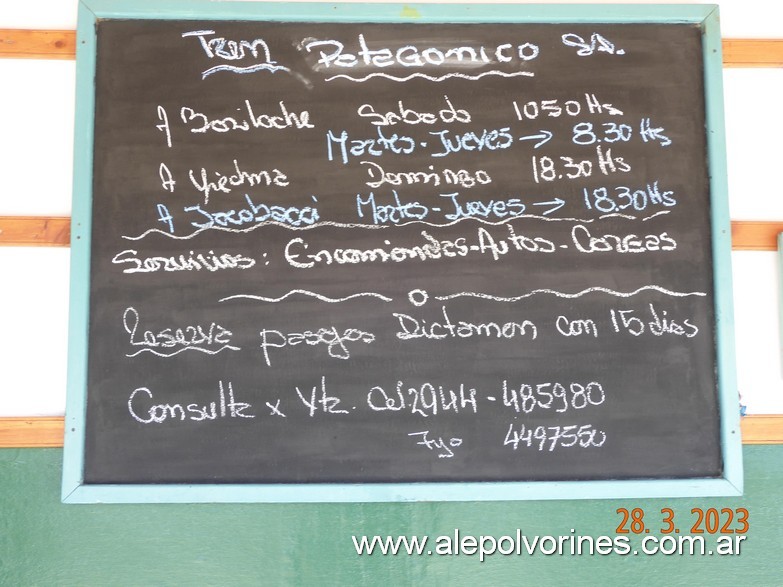 Tren Patagonico SA.
A Bariloche Sabado 1050 Hs
Martes-Jueves → 8.30 Hs
A Viedma Domingo 18.30 Hs
A Jacobacci Martes-Jueves → 18.30 Hs
Servicios: Encomiendas-Autos-Cargas
Reserva pasajes Dictamen con 15 dias
Consulta x Cel 2944-485980
Fijo 4497550
28. 3. 2023
www.alepolvorines.com.ar